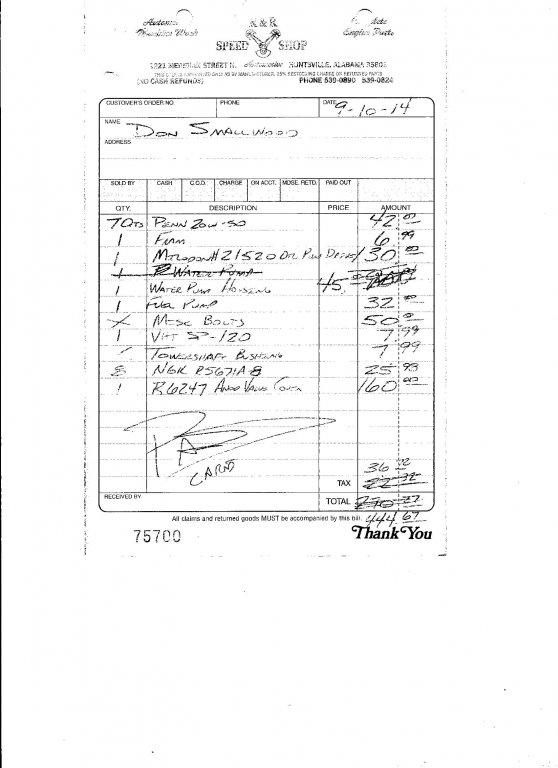 Automotive
Machine Work
A & R
SPEED SHOP
Auto
Engine Parts
HUNTSVILLE, ALABAMA
(NO CASH REFUNDS)
PHONE 539-0890 539-0824
CUSTOMER'S ORDER NO. PHONE DATE 9-10-14
NAME DON SMALLWOOD
ADDRESS
SOLD BY CASH C.O.D. CHARGE ON ACCT. MDSE. RETD. PAID OUT
QTY. DESCRIPTION PRICE AMOUNT
7 QTS PENN 20W-50 42.00
1 6.99
1 #21520 30.00
1 WATER PUMP
1 WATER PUMP HOUSING 45.
1 FUEL PUMP 32.00
MISC BOLTS 50.00
1 VHT SP-120 7.99
TOWERSHAFT BUSHING 7.99
8 NGK R5671A-8 25.93
1 R6247 VALVE COVER 160.00
CARD
36.72
TAX 22.32
RECEIVED BY
TOTAL 270.27
All claims and returned goods MUST be accompanied by this bill. 444.67
75700 Thank You